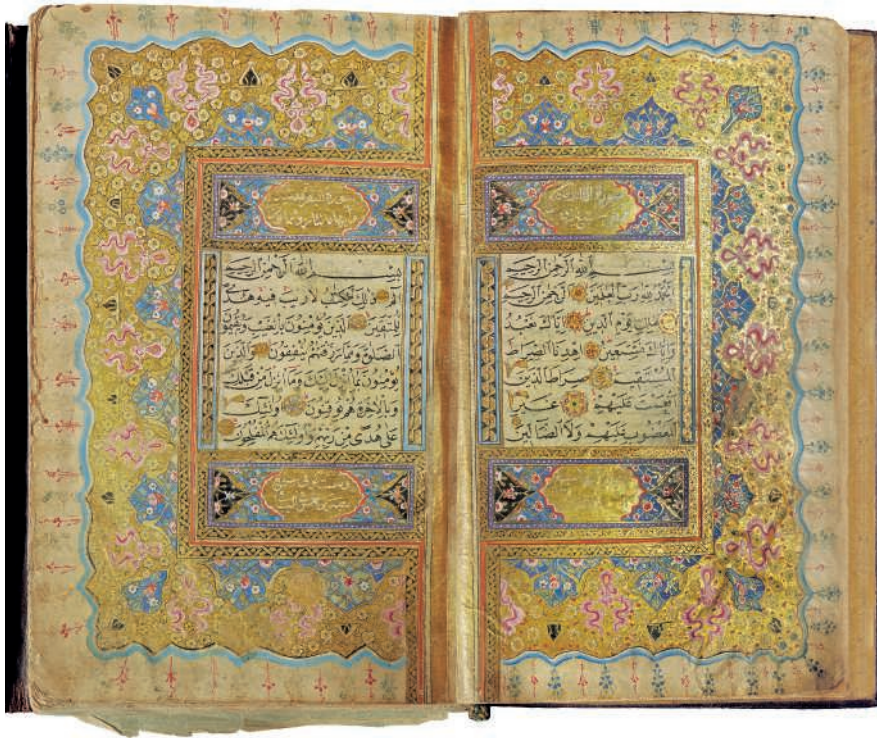 سورة الفاتحة
بسم الله الرحمن الرحيم
الحمد لله رب العلمين الرحمن الرحيم
ملك يوم الدين اياك نعبد
واياك نستعين اهدنا الصراط
المستقيم صراط الذين
انعمت عليهم غير
المغضوب عليهم ولا الضالين
بسم الله الرحمن الرحيم
الم ذلك الكتاب لا ريب فيه هدى
للمتقين الذين يؤمنون بالغيب ويقيمون
الصلوة ومما رزقناهم ينفقون والذين
يؤمنون بما انزل اليك وما انزل من قبلك
وبالاخرة هم يوقنون اولئك
على هدى من ربهم واولئك هم المفلحون